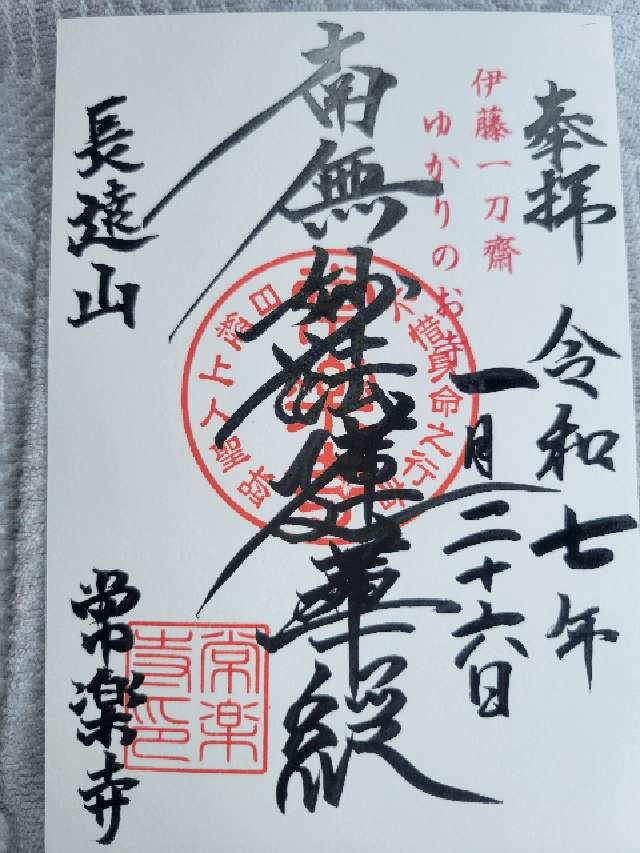 奉拝 令和七年
一月二十六日
伊藤一刀齋
ゆかりのお
南無妙法蓮華経
惜身命之行
上人霊跡
長遠山 常楽寺
常楽
寺印